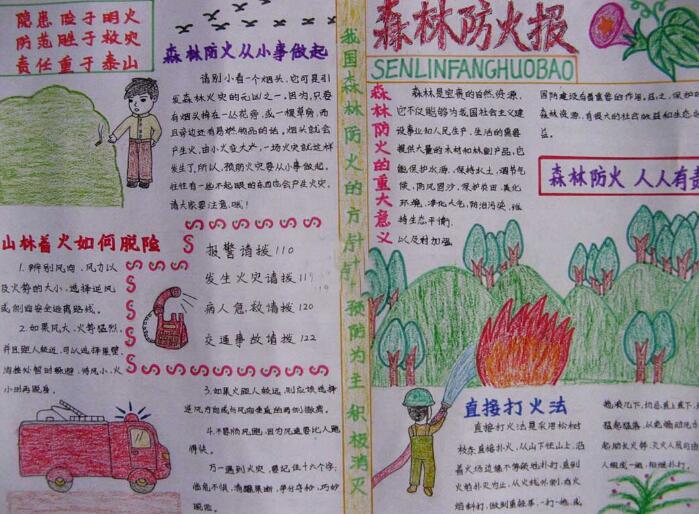 隐患险于明火
防范胜于救灾
责任重于泰山
森林防火从小事做起
请别小看一个烟头，它可是引
发森林火灾的元凶之一，因为，只要
有烟头掉在一丛花旁，或一棵草旁，而
且旁边还有易燃物品的话，烟头就会
产生火，由小火变大火，一场火灾就这样
发生了。所以，预防火灾要从小事做起。
往往有些不起眼的东西也会产生火灾，
请大家要注意，哦！
山林着火如何脱险
1.辨别风向、风力以
及火势的大小，选择逆风
或侧面安全逃离路线。
2.如果风大、火势猛烈，
并且距人较近，可以选择崖壁、
沟洼处暂时躲避，待风小、火
小时再脱身。
报警请拨110
发生火灾请拨119
病人急救请拨120
交通事故请拨122
3.如果火距人较远，则应该选择
逆风方向或与风向垂直的两侧撤离。
4.不要顺风跑，因为风速要比人跑
得快。
万一遇到火灾，要记住十六字：
临危不惧，清醒果断，争分夺秒，巧妙
脱险。
我国森林防火的方针 预防为主 积极消灭
森林防火报
SENLINFANGHUOBAO
森林防火的重大意义
森林是宝贵的自然资源，
它不仅能够为我国社会主义建
设事业和人民生产、生活的需要
提供大量的木材和林副产品，它
能保护水源、保持水土、调节气
候、防风固沙、保护农田、美化
环境、净化大气、防治污染、维
持生态平衡，
以及对加强
国防建设有着重要的作用。总之，保护
森林资源，有很大的社会效益和生态
益。
森林防火 人人有责
直接打火法
直接打火法是采用松树
枝条直接扑火，从山下往山上，沿
着火场边缘不等候地扑打，直到
火焰扑灭为止，从火线外侧，向火
焰斜打，做到重轻举，一打一拖，